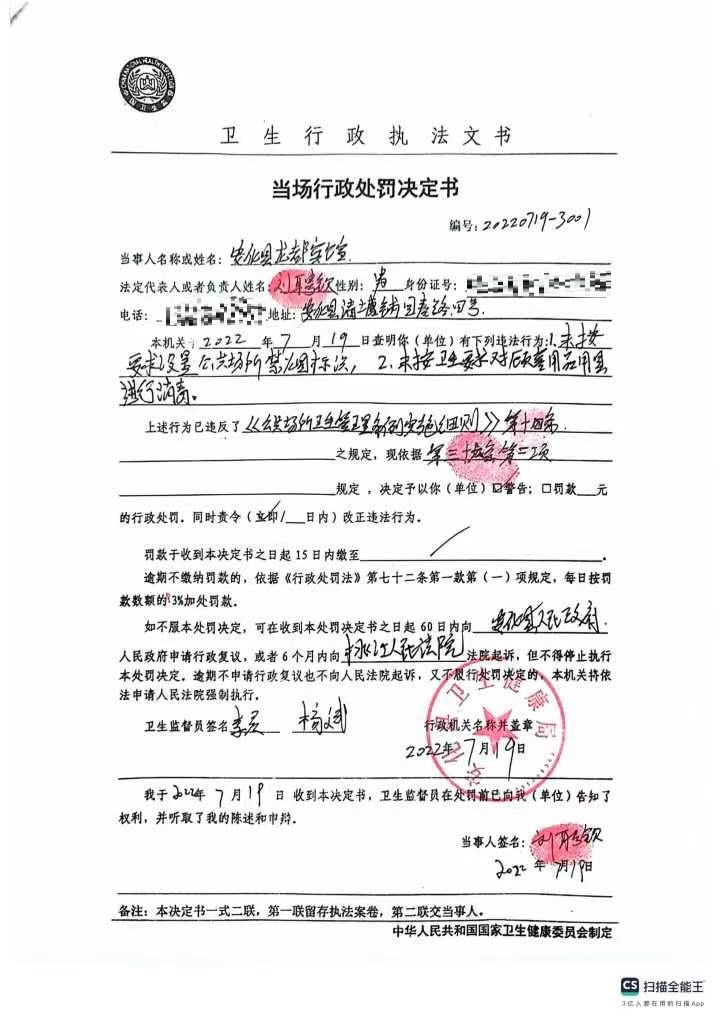 卫生行政执法文书
当场行政处罚决定书
编号:20220719-3001
当事人名称或姓名:安化县龙都宾馆
法定代表人或者负责人姓名: 性别: 身份证号:
电话: 地址:安化县清塘铺
本机关于2022年7月19日查明你(单位)有下列违法行为:1.未按
要求设置公共场所禁烟标识,2.未按卫生要求对顾客用品用具
进行消毒。
上述行为已违反了《公共场所卫生管理条例实施细则》第十四条
之规定,现依据第三十六条第二项
规定,决定予以你(单位)☑警告;☐罚款 元
的行政处罚。同时责令(立即/ 日内)改正违法行为。
罚款于收到本决定书之日起15日内缴至 。
逾期不缴纳罚款的,依据《行政处罚法》第七十二条第一款第(一)项规定,每日按罚
款数额的3%加处罚款。
如不服本处罚决定,可在收到本处罚决定书之日起60日内向安化县人民政府
人民政府申请行政复议,或者6个月内向 人民法院法院起诉,但不得停止执行
本处罚决定。逾期不申请行政复议也不向人民法院起诉,又不履行处罚决定的,本机关将依
法申请人民法院强制执行。
卫生监督员签名 行政机关名称并盖章
安化县卫生健康局
2022年7月19日
我于2022年7月19日收到本决定书,卫生监督员在处罚前已向我(单位)告知了
权利,并听取了我的陈述和申辩。
当事人签名:
2022年7月19日
备注:本决定书一式二联,第一联留存执法案卷,第二联交当事人。
中华人民共和国国家卫生健康委员会制定
CS 扫描全能王
3亿人都在用的扫描App